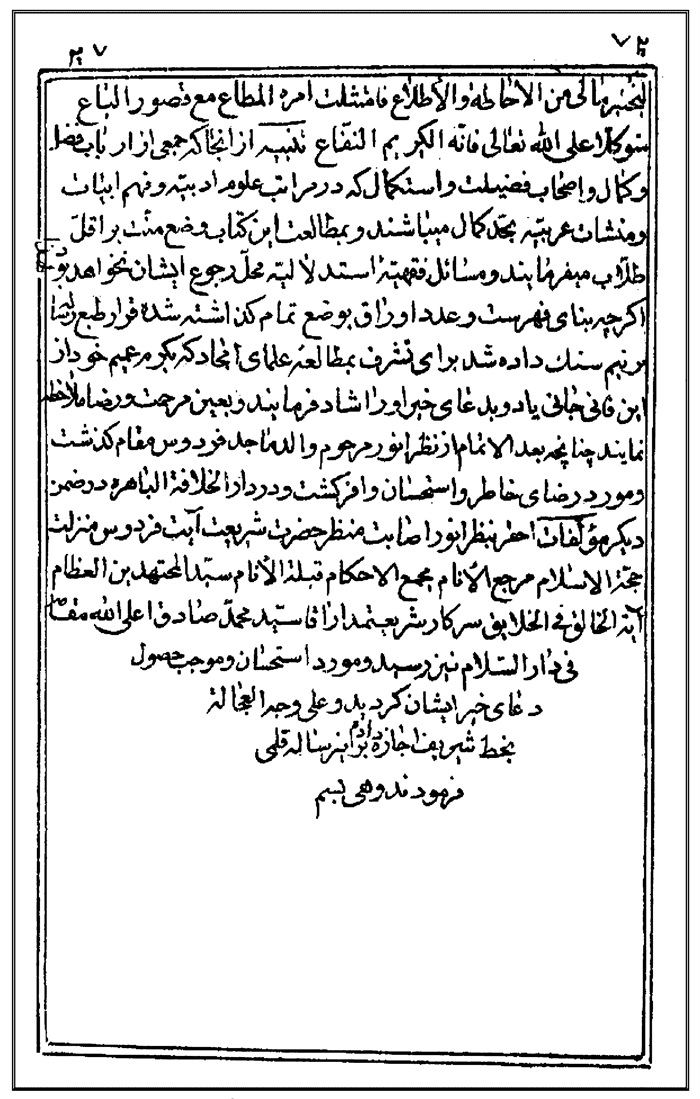 ٧٢ ٧٢
لتخبر مالی من الاحاطة والأطلاع فامتثلت امره المطاع مع قصور الباع
متوکلا علی الله تعالی فانه الکریم النفاع تنبیه از انجا که جمعی از ارباب فضل
و کمال و اصحاب فضیلت و استکمال که در مراتب علوم ادبیه و فهم ابیات
و منشات عربیه بحد کمال میباشند و بمطالعت این کتاب وضع منت بر اقل
طلاب میفرمایند و مسائل فقهیه استدلالیه محل رجوع ایشان نخواهد بود
اکرچه بنای فهرست و عدد اوراق بوضع تمام کذاشته شده قرار طبع را
بر نیم سنک داده شد برای تشرف بمطالعه علمای امجاد که بکرم عمیم خود از
این فانی جانی یاد و بدعای خیر او را شاد فرمایند و بعین مرحمت و رضا ملاحظه
نمایند چنانچه بعد الاتمام از نظر انور مرحوم والد ماجد فردوس مقام کذشت
و مورد رضای خاطر و استحسان وافر کشت و در دار الخلافة الباهره در ضمن
دیکر مؤلفات احقر بنظر انور اصابت منظر حضرت شریعت آیت فردوس منزلت
حجة الاسلام مرجع الأنام مجمع الاحکام قبلة الأنام سید المجتهدین العظام
آیة الخالق فی الخلایق سرکار شریعتمدار اقا سید محمد صادق اعلی الله مقامه
فی دار السلام نیز رسید و مورد استحسان و موجب حصول
دعای خیر ایشان کردید و علی وجه العجالة
بخط شریف اجازه دادم بر این رساله قلمی
فرمودند و هی بسم